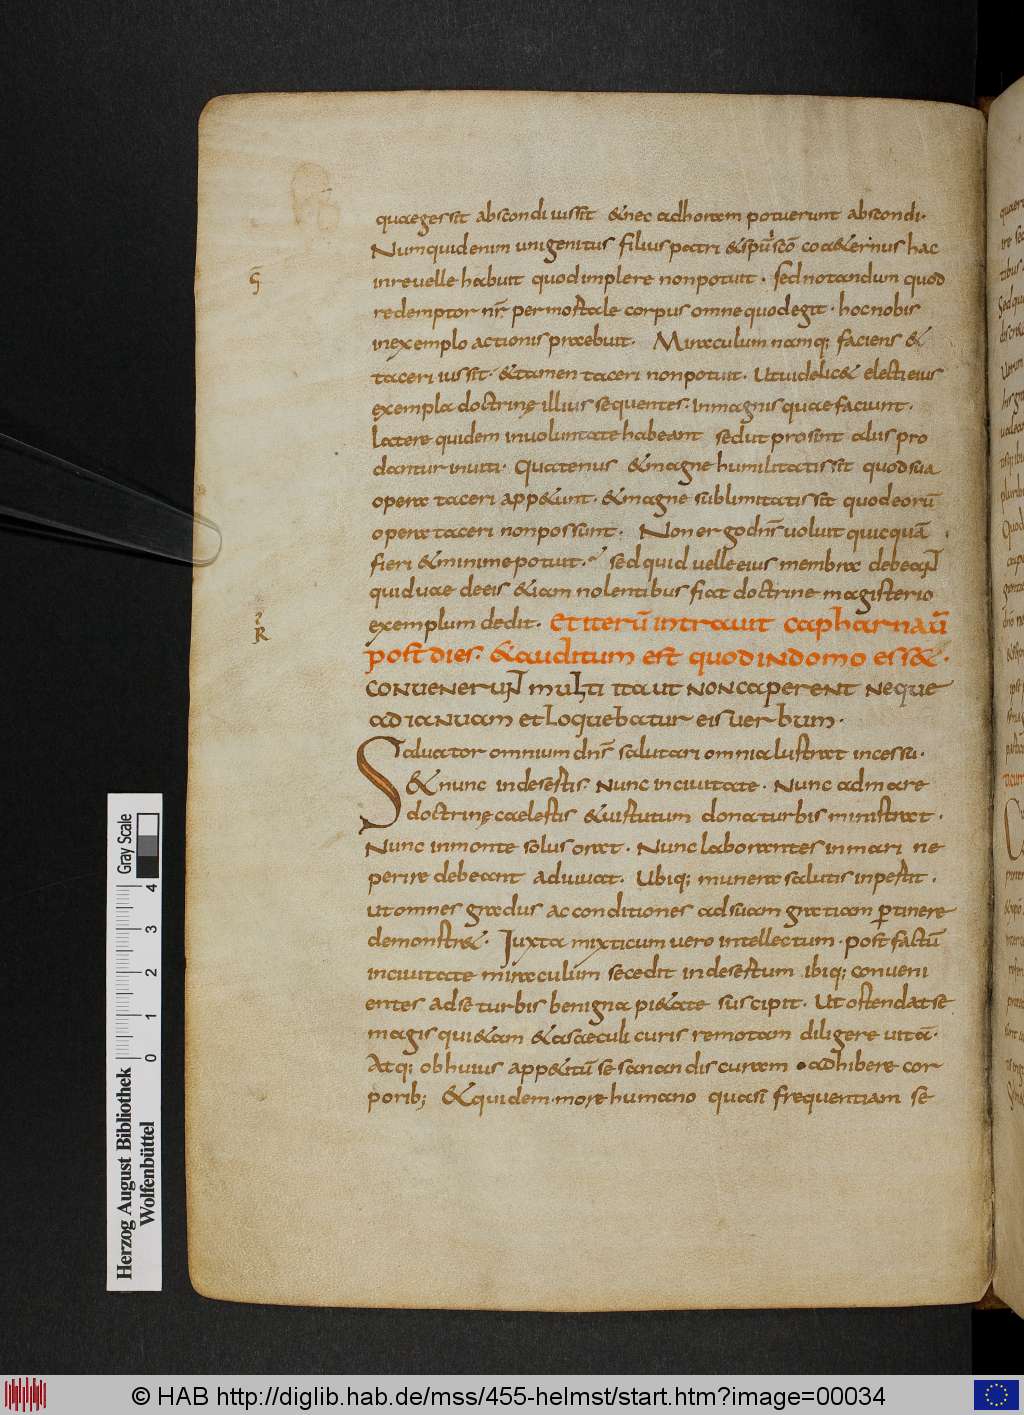 quae gessit abscondi iussit & nec ad horam potuerunt abscondi.
Numquid enim unigenitus filius patri & spūi scō coaeternus hac
in re uelle habuit quod implere non potuit. Sed notandum quod
redemptor nr̄ per mortale corpus omne quod egit. hoc nobis
in exemplo actionis praebuit. Miraculum namq; faciens &
taceri iussit. & tamen taceri non potuit. Ut uidelic& electi eius
exempla doctrinę illius sequentes. in magnis quae faciunt.
latere quidem in uoluntate habeant sed ut prosint aliis pro
dantur inuiti. Quatenus & magne humilitatis sit quod sua
opera taceri app&unt. & magne sublimitatis sit quod eorū
opera taceri non possunt. Non ergo dn̄s uoluit quicquā
fieri & minime potuit. sed quid uelle eius membra debeant
quid uae de eis &iam nolentibus fiat doctrine magisterio
exemplum dedit. Et iterū intrauit capharnaū
post dies. & auditum est quod in domo ess&.
conuenerunt multi ita ut non caperent neque
ad ianuam et loquebatur eis uerbum.
Saluator omnium dn̄s salutari omnia lustrat incessu.
& nunc in desertis. Nunc in ciuitate. Nunc ad mare
doctrinę caelestis & uirtutum dona turbis ministrat.
Nunc in monte solus orat. Nunc laborantes in mari ne
perire debeant adiuuat. Ubiq; munera salutis inpertit.
ut omnes gradus ac conditiones ad suam gratiam ptinere
demonstr&. Iuxta mixticum uero intellectum. post factū
in ciuitate miraculum secedit in desertum ibiq; conueni
entes ad se turbis benigna pi&ate suscipit. Ut ostendat se
magis qui&am & a saeculi curis remotam diligere uitā.
Atq; ob huius app&itū se sanandis curam adhibere cor
porib; & quidem more humano quasi frequentiam se
Herzog August Bibliothek
Wolfenbüttel
0 1 2 3 4
Gray Scale
© HAB http://diglib.hab.de/mss/455-helmst/start.htm?image=00034